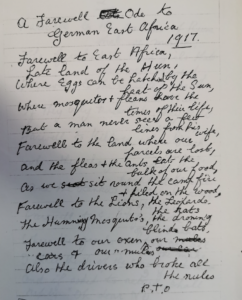 A Farewell Ode to
German East Africa
1917.
Farewell to East Africa,
Late Land of the Hun,
Where Eggs can be hatched by the
heat of the Sun,
Where mosquitos & fleas have the
times of their life,
But a man never sees a
lines from his wife,
Farewell to the land where our
Parcels are lost,
and the fleas & the ants, gets the
bulk of our food,
As we sit round the camp fire
& on the wood,
Farewell to the Lions, the Leopards.
the Rats,
the Humming Mosquito's, the droning
blinde bats,
Farewell to our oxen, our
ears of our mules
Also the drivers who broke all
the rules
P.T.O